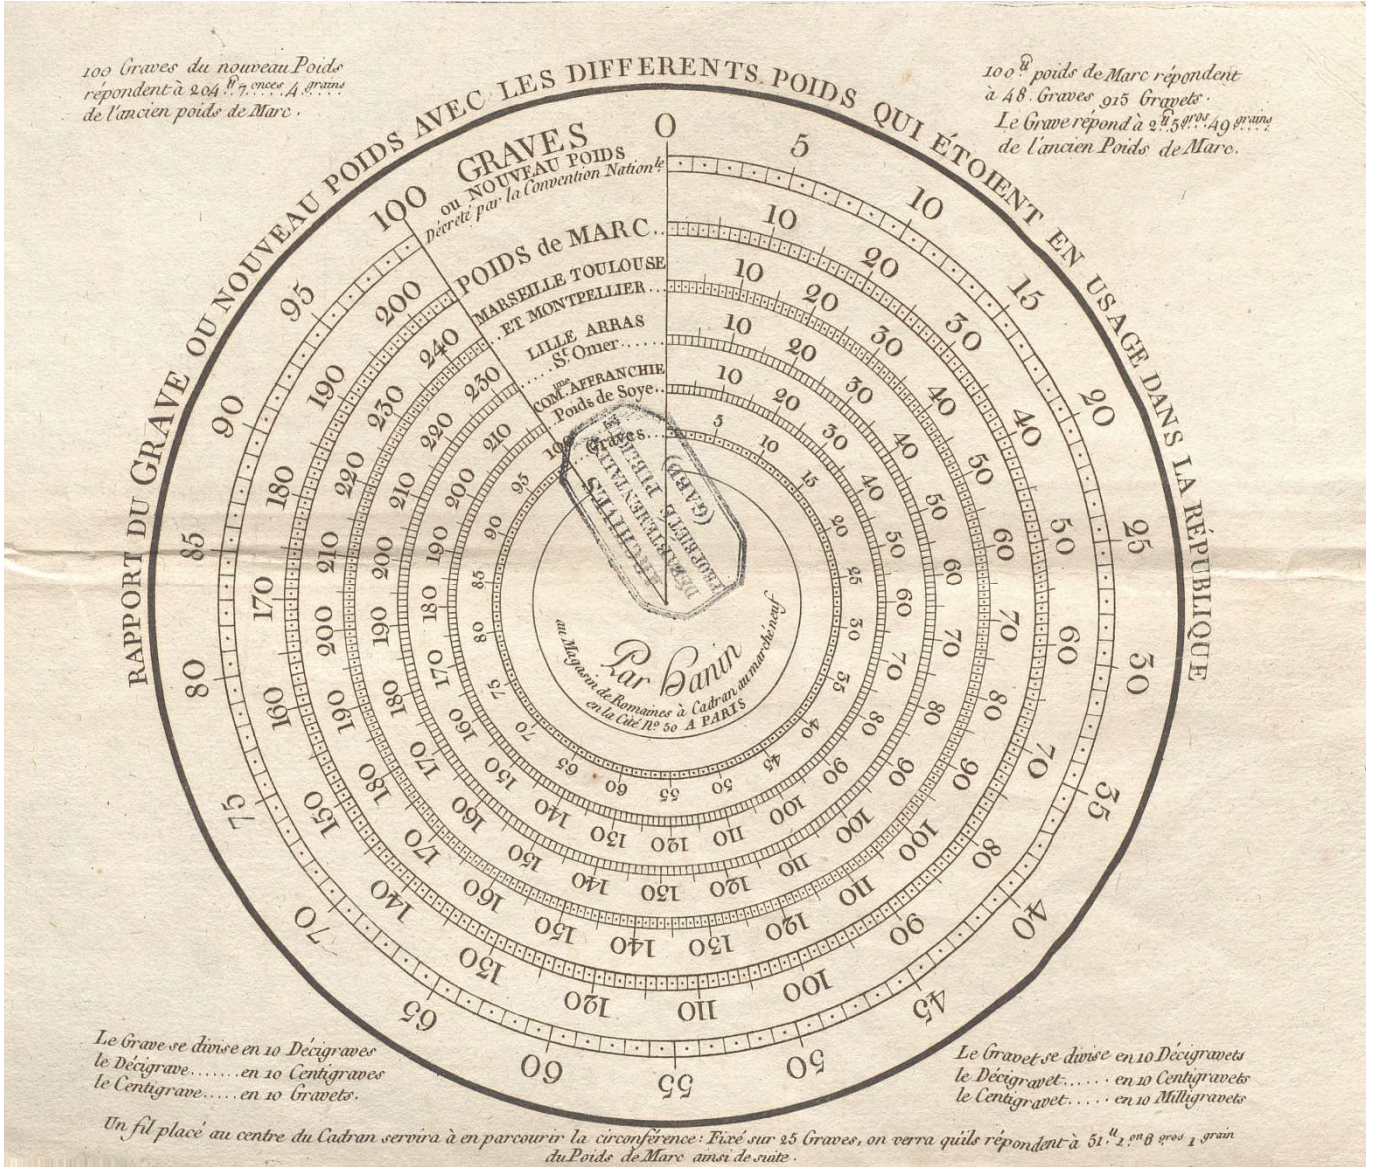 100 Graves du nouveau Poids
répondent à 204 ₶ 7 onces 4 grains
de l'ancien poids de Marc.
100 ₶ poids de Marc répondent
à 48. Graves 915 Gravets.
Le Grave répond à 2 ₶ 5 gros 49 grains
de l'ancien Poids de Marc.
RAPPORT DU GRAVE OU NOUVEAU POIDS AVEC LES DIFFERENTS POIDS QUI ÉTOIENT EN USAGE DANS LA RÉPUBLIQUE
GRAVES
ou NOUVEAU POIDS
Décrété par la Convention Nation.le
0 5 10 15 20 25 30 35 40 45 50 55 60 65 70 75 80 85 90 95 100
POIDS de MARC..
10 20 30 40 50 60 70 80 90 100 110 120 130 140 150 160 170 180 190 200
MARSEILLE TOULOUSE
ET MONTPELLIER...
10 20 30 40 50 60 70 80 90 100 110 120 130 140 150 160 170 180 190 200 210 220 230 240
LILLE ARRAS
St. Omer......
10 20 30 40 50 60 70 80 90 100 110 120 130 140 150 160 170 180 190 200 210 220 230
COM.une AFFRANCHIE
Poids de Soye..
10 20 30 40 50 60 70 80 90 100 110 120 130 140 150 160 170 180 190 200 210
Graves...
5 10 15 20 25 30 35 40 45 50 55 60 65 70 75 80 85 90 95 100
ARCHIVES
DÉPARTEMENTALES
PROPRIÉTÉ PUBL
(GARD)
Par Hanin
au Magasin de Romaines à Cadran au marché neuf
en la Cité No. 50 A PARIS
Le Grave se divise en 10 Décigraves
le Décigrave.......en 10 Centigraves
le Centigrave.....en 10 Gravets.
Le Gravet se divise en 10 Décigravets
le Décigravet...... en 10 Centigravets
le Centigravet..... en 10 Milligravets
Un fil placé au centre du Cadran servira à en parcourir la circonférence: Fixé sur 25 Graves, on verra qu'ils répondent à 51 ₶ 1 on 8 gros 1 grain
du Poids de Marc ainsi de suite.